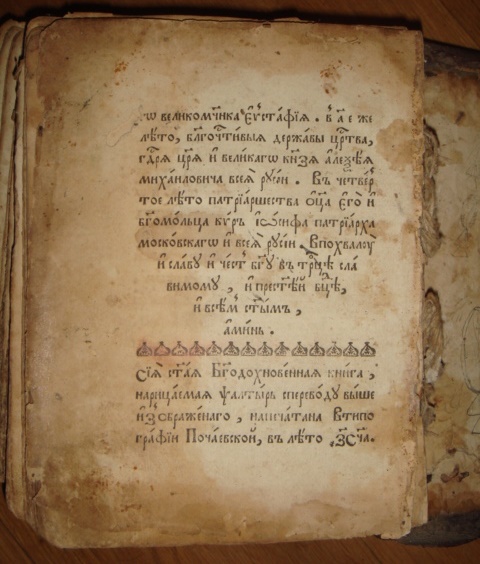 ѡ великомч҃ника Еѵ҆ста́фїѧ . в҃ а҃ е же
лѣ́то , бл҃гочⷭ҇ти́выѧ держа́вы црⷭ҇тва ,
гдⷭ҇рѧ цр҃ѧ и҆ вели́кагѡ кн҃зѧ алеѯѣ́ѧ
миха́иловича всеѧ̀ рꙋсі́и . Въ четве́р
тое лѣ́то патрїа́ршества ѻ҆ц҃а̀ єго̀ и҆
бг҃омо́льца кѵ́ръ і҆ѡ́сифа патрїа́рха
моско́вскагѡ и҆ всеѧ̀ рꙋсі́и , Впохвалоу̀
и҆ сла́вꙋ и҆ че́сть бг҃ꙋ въ трⷪ҇цѣ сла
вимомꙋ , и҆ прест҃ѣ́й бц҃ѣ ,
и҆ всѣ́мъ ст҃ы́мъ ,
а҆ми́нь .
Сїѧ̀ ст҃а́ѧ Бг҃одохнове́ннаѧ кни́га ,
нарица́емаѧ Ѱалты́рь сперево́дꙋ вы́ше
и҆зѻбраже́наго , напеча́тана Втѵпо
гра́фїи Поча́евской , въ лѣ́то ҂зс҃ча .